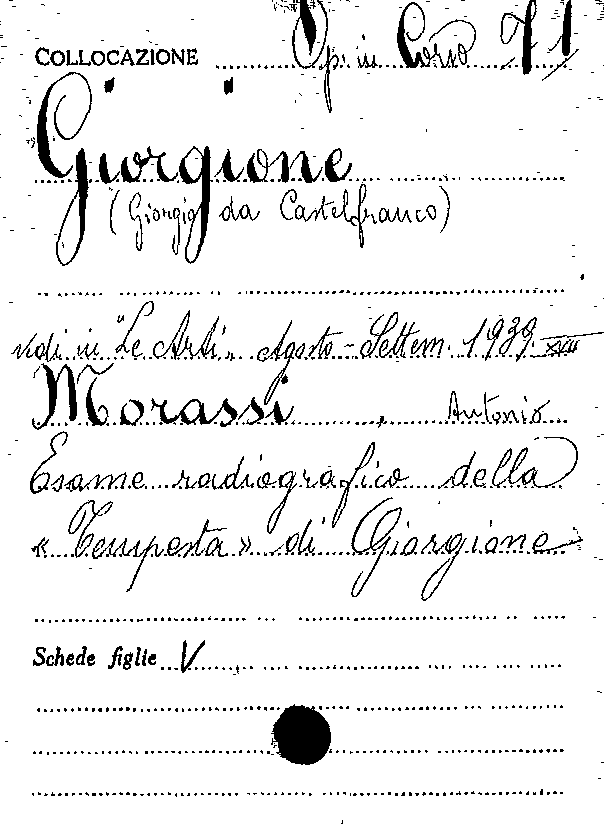 COLLOCAZIONE Op. in Corso 71
Giorgione
(Giorgio da Castelfranco)
vedi in "Le Arti" Agosto-Settem. 1939. XVII
Morassi, Antonio
Esame radiografico della
« Tempesta » di Giorgione
Schede figlie V